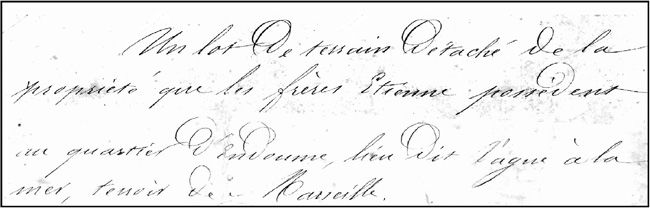 Un lot De terrain Détaché de la
propriété que les frères Etienne possèdent
au quartier D'Endoume, lieu dit l'ague à la
mer, terroir de Marseille.